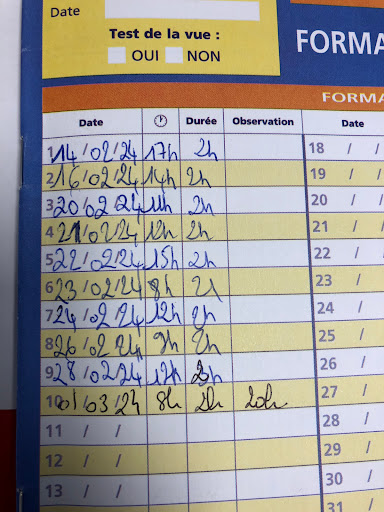 Date
Test de la vue :
OUI NON
FORMA
FORMA
Date Durée Observation Date
1 14/02/24 17h 2h 18 / /
2 16/02/24 14h 2h 19 / /
3 20/02/24 11h 2h 20 / /
4 21/02/24 12h 2h 21 / /
5 22/02/24 15h 2h 22 / /
6 23/02/24 8h 23 / /
7 24/02/24 12h 2h 24 / /
8 26/02/24 9h 2h 25 / /
9 28/02/24 h 26 / /
10 01/03/24 8h 2h 20h 27 / /
11 / / 28 / /
12 / / 29 / /
13 / / 30 / /
31 /